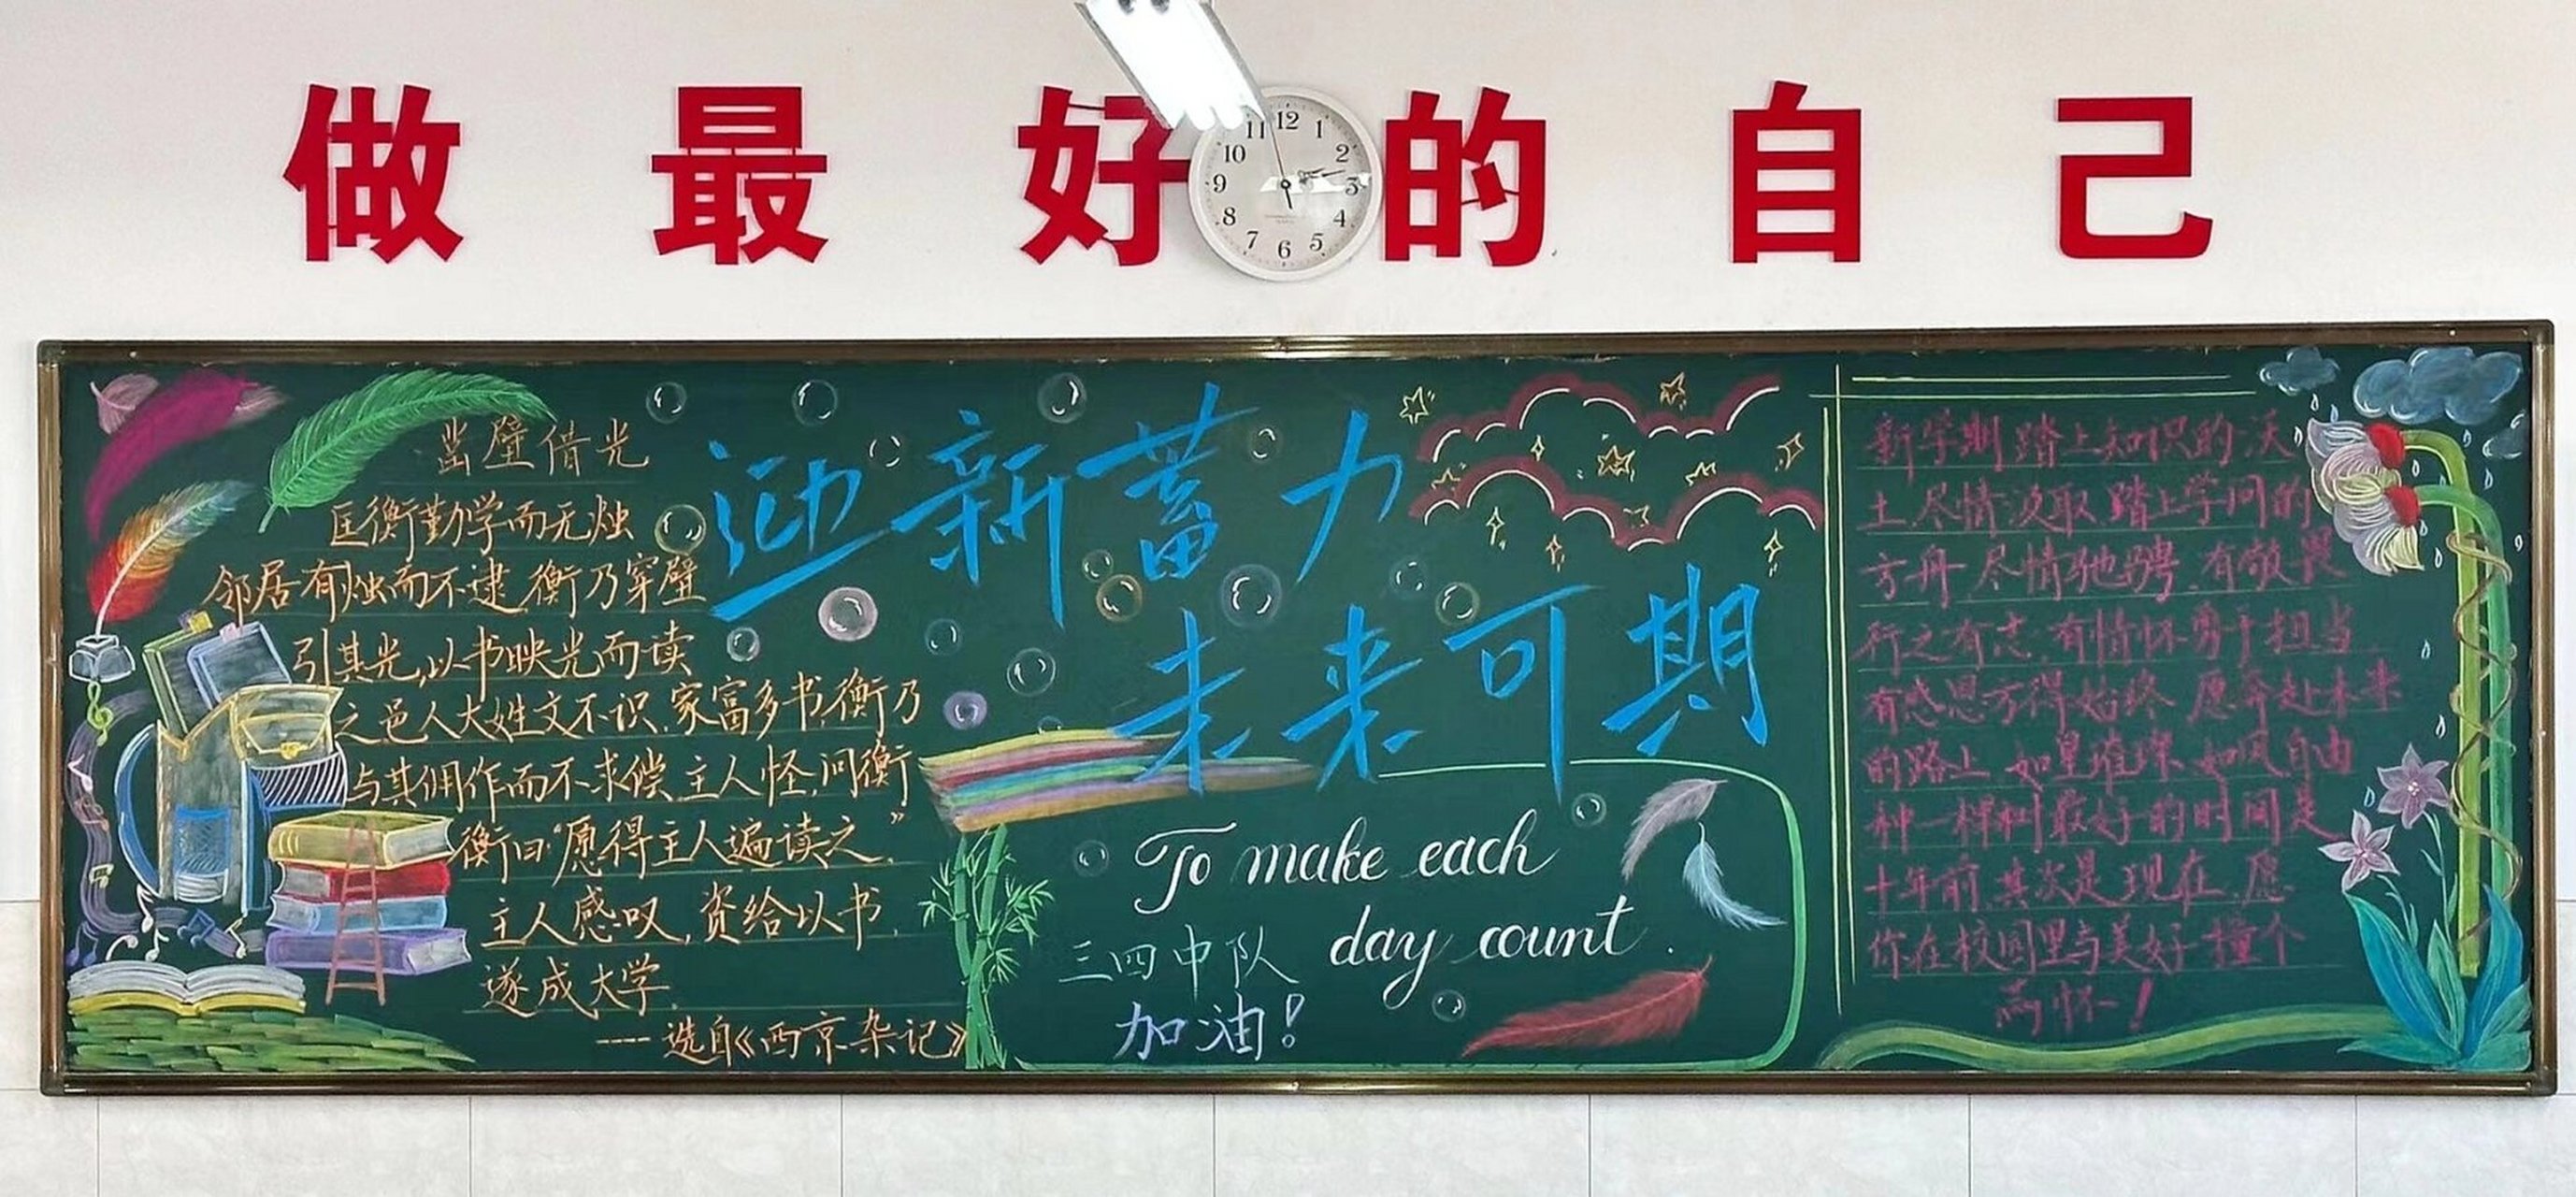 做最好的自己
11 12 1
10 2
9 3
8 4
7 6 5
凿壁借光
匡衡勤学而无烛
邻居有烛而不逮,衡乃穿壁
引其光,以书映光而读
之邑人大姓文不识,家富多书,衡乃
与其佣作而不求偿,主人怪,问衡
衡曰:“愿得主人遍读之.”
主人感叹,资给以书.
遂成大学.
---- 选自《西京杂记》
迎新蓄力
未来可期
To make each
day count.
三四中队
加油!
新学期,踏上知识的沃
土,尽情汲取,踏上学问的
方舟,尽情驰骋.有敬畏
行之有志,有情怀勇于担当
有感恩方得始终.愿奔赴未来
的路上,如星璀璨,如风自由
种一棵树最好的时间是
十年前,其次是现在.愿
你在校园里与美好撞个
满怀!